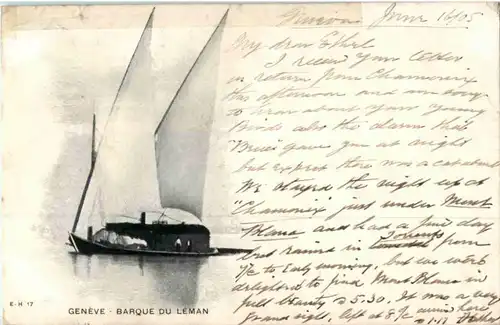 Geneva June 16/05
My dear Ethel
I recd your letter
on return from Chamonix
this afternoon and am sorry
to learn about your young
Birds also the alarm that
"Bruce" gave you at night
but expect there was a cat about
We stayed the night up at
"Chamonix" just under Mont
Blanc and had a fine day
but rained in torrents from
to early morning, but we were
delighted to find Mont Blanc in
full beauty @ 5.30. It was a very
grand sight, left at
E-H 17
GENÈVE - BARQUE DU LÉMAN